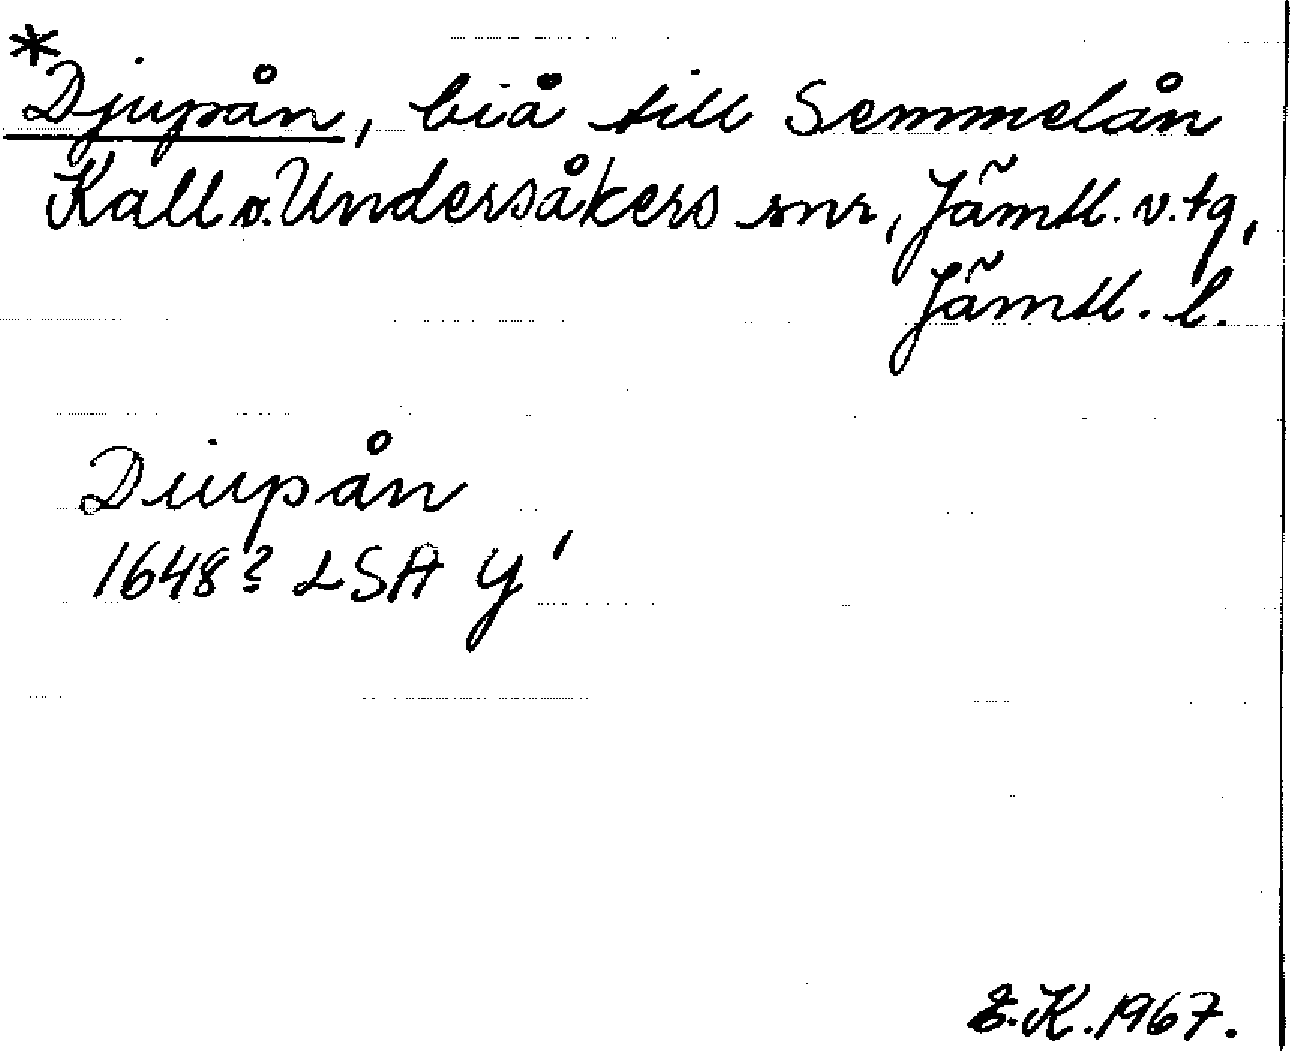 *
Djupån, biå till Semmelån
Kall o. Undersåkers snr, Jämtl. v. tg,
Jämtl. l.
Diupån
1648? LSA Y'
E.K. 1967.